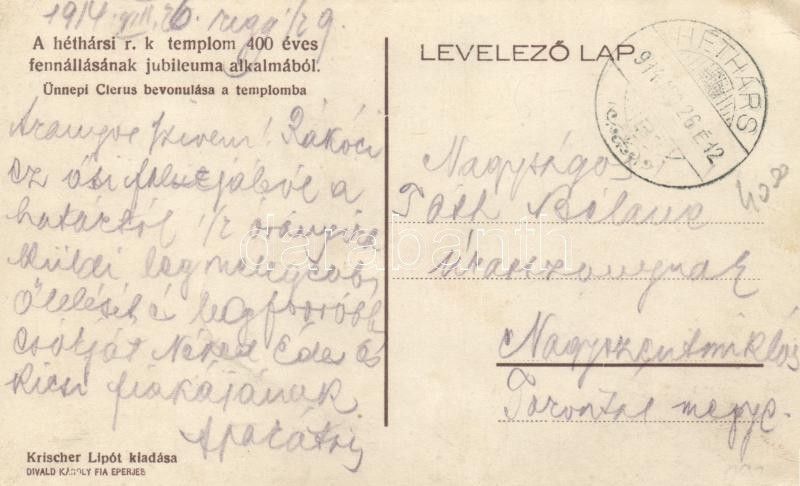 1914 VIII. 26. regg 1/2 9.
A héthársi r. k templom 400 éves
fennállásának jubileuma alkalmából.
Ünnepi Clerus bevonulása a templomba
Aranyos Szivem! Rákóci
az ősi falujából a
határtól 1/2 órányira
küldi legmelegebb
ölelését és legforróbb
csókját Neked Édes és
kicsi fiakájának
Apacátok
Krischer Lipót kiadása
DIVALD KÁROLY FIA EPERJES
LEVELEZŐ LAP
HÉTHÁRS
914 26 E 12
Nagyságos
Tóth Béláné
úrasszonynak
Nagyszentmiklós
Torontál megye.
darabanth